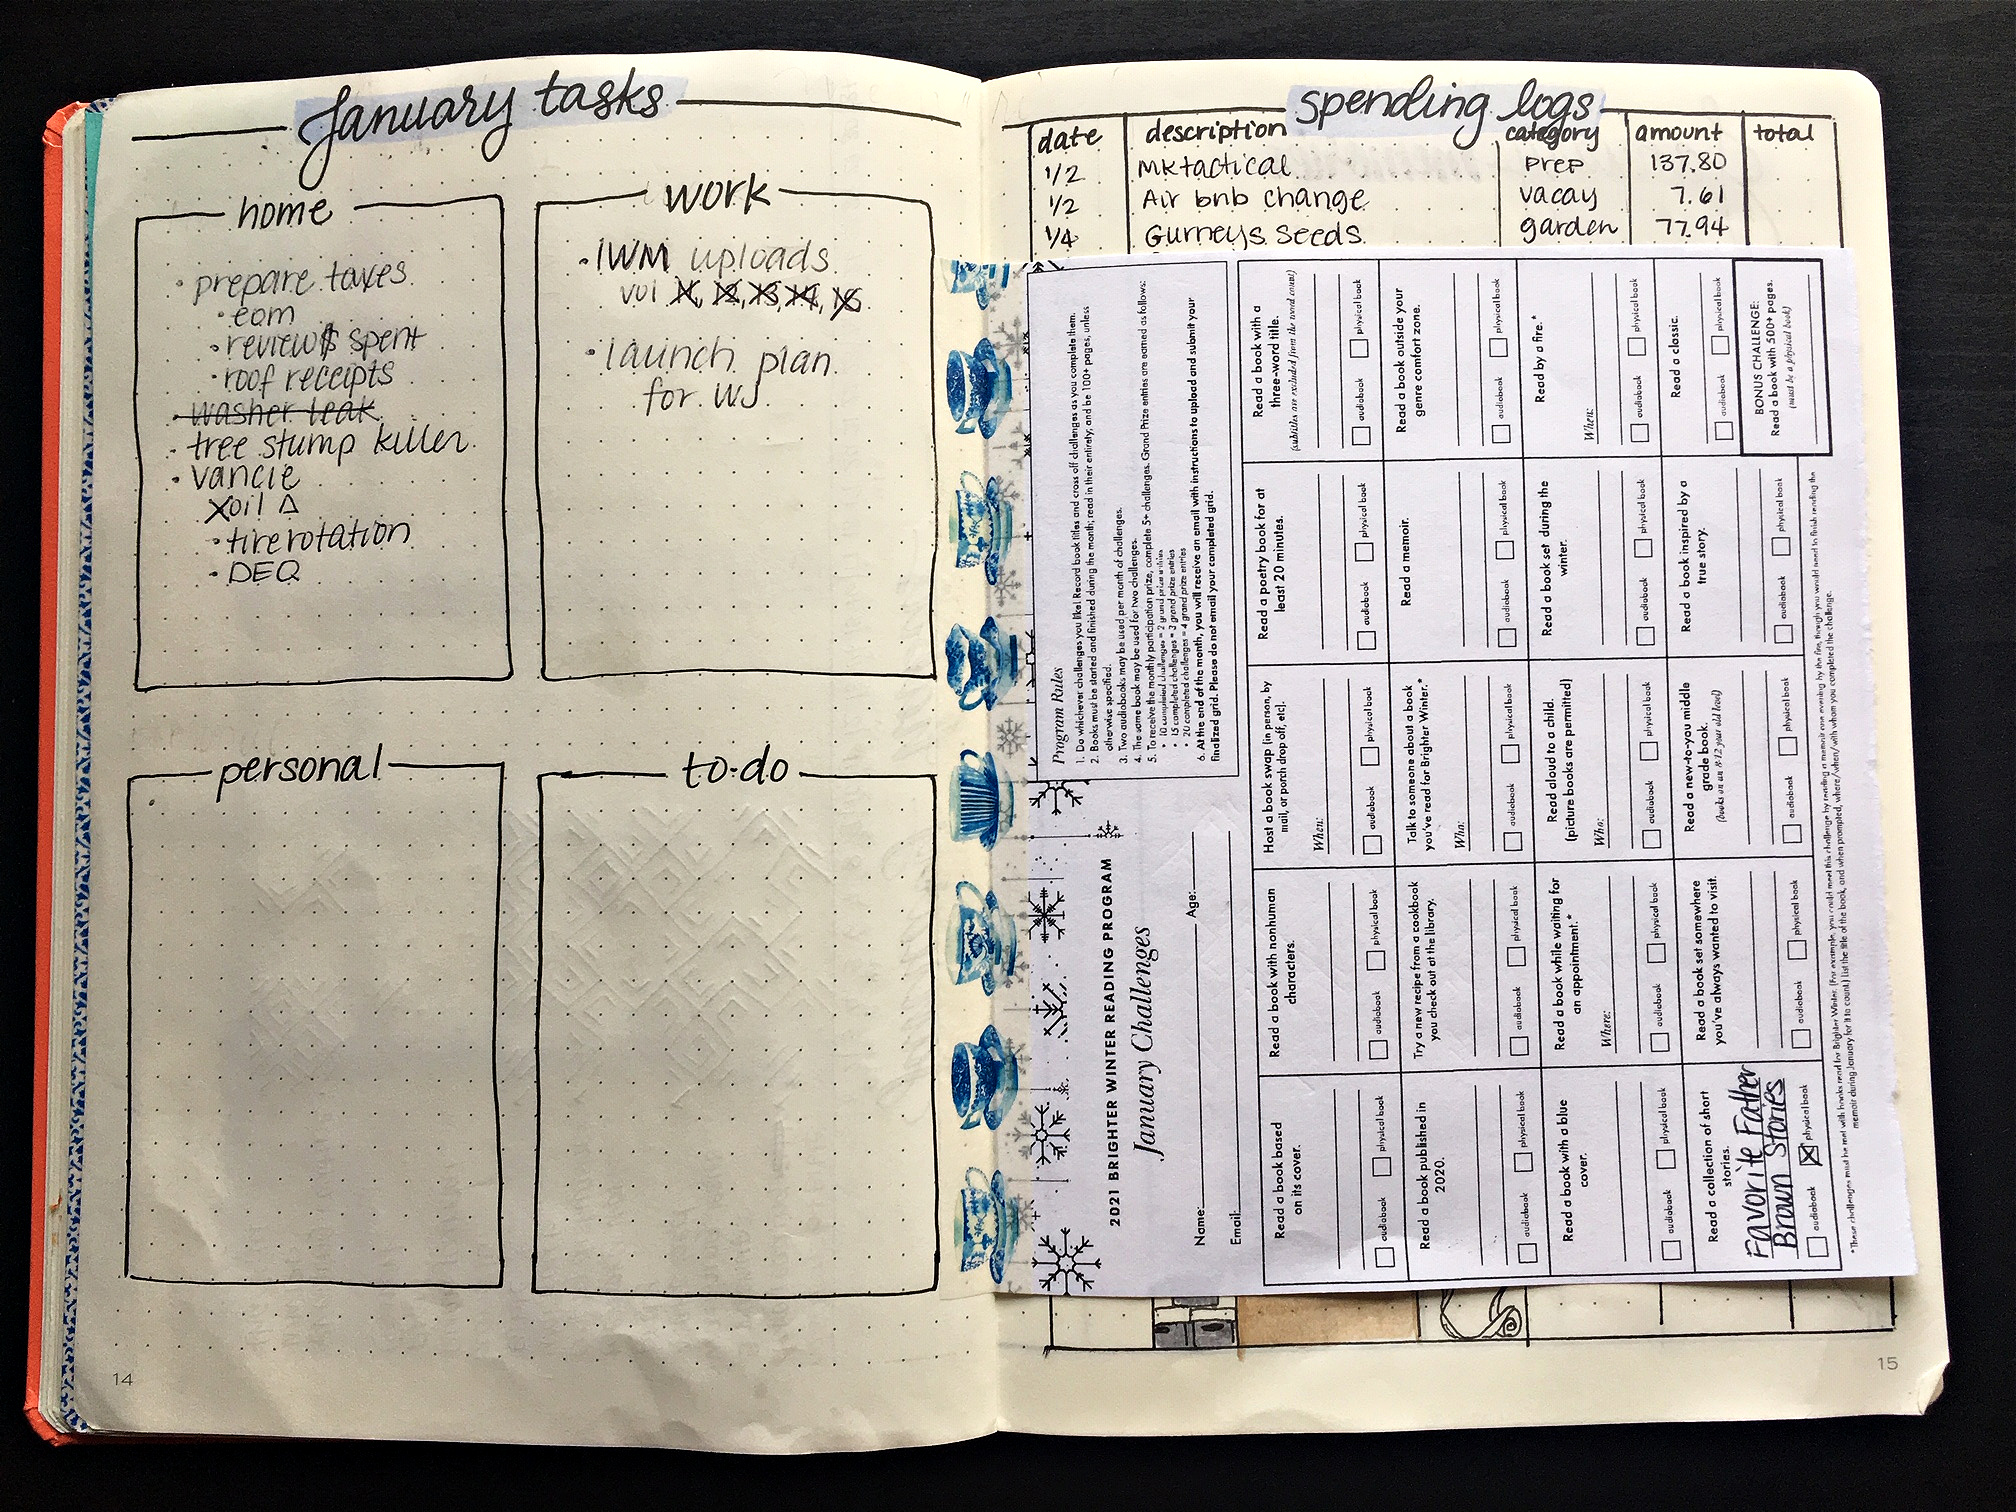 January tasks
home
· prepare taxes
· eom
· review $ spent
· roof receipts
· washer leak
· tree stump killer
· vancie
X oil Δ
· tire rotation
· DEQ
work
· IWM uploads
vol 11, 12, 13, 14, 15
· launch plan
for WJ
personal
to-do
14
spending logs
date description category amount total
1/2 Mktactical prep 137.80
1/2 Air bnb change vacay 7.61
1/4 Gurneys seeds garden 77.94
2021 BRIGHTER WINTER READING PROGRAM
January Challenges
Name: Age:
Email:
Program Rules
1. Do whichever challenges you like! Record book titles and cross off challenges as you complete them.
2. Books must be started and finished during the month; read in their entirety; and be 100+ pages, unless
otherwise specified.
3. Two audiobooks may be used per month of challenges.
4. The same book may be used for two challenges.
5. To receive the monthly participation prize, complete 5+ challenges. Grand Prize entries are earned as follows:
• 10 completed challenges = 2 grand prize entries
• 15 completed challenges = 3 grand prize entries
• 20 completed challenges = 4 grand prize entries
6. At the end of the month, you will receive an email with instructions to upload and submit your
finalized grid. Please do not email your completed grid.
Read a book based
on its cover.
audiobook physical book
Read a book with nonhuman
characters.
audiobook physical book
Host a book swap (in person, by
mail, or porch drop off, etc).
When:
audiobook physical book
Read a poetry book for at
least 20 minutes.
audiobook physical book
Read a book with a
three-word title.
(subtitles are excluded from the word count)
audiobook physical book
Read a book published in
2020.
audiobook physical book
Try a new recipe from a cookbook
you check out at the library.
audiobook physical book
Talk to someone about a book
you've read for Brighter Winter.*
Who:
audiobook physical book
Read a memoir.
audiobook physical book
Read a book outside your
genre comfort zone.
audiobook physical book
Read a book with a blue
cover.
audiobook physical book
Read a book while waiting for
an appointment.*
Where:
audiobook physical book
Read aloud to a child.
(picture books are permitted)
Who:
audiobook physical book
Read a book set during the
winter.
audiobook physical book
Read by a fire.*
When:
audiobook physical book
Read a collection of short
stories.
Favorite Father
Brown Stories
audiobook physical book
Read a book set somewhere
you've always wanted to visit.
audiobook physical book
Read a new-to-you middle
grade book.
(books on an 8-12 year old level)
audiobook physical book
Read a book inspired by a
true story.
audiobook physical book
Read a classic.
audiobook physical book
BONUS CHALLENGE:
Read a book with 500+ pages.
(must be a physical book)
*These challenges must be met with books read for Brighter Winter. (For example, you could meet this challenge by reading a memoir one evening by the fire, though you would need to finish reading the
memoir during January for it to count.) List the title of the book, and when prompted, where/when/with whom you completed the challenge.
15